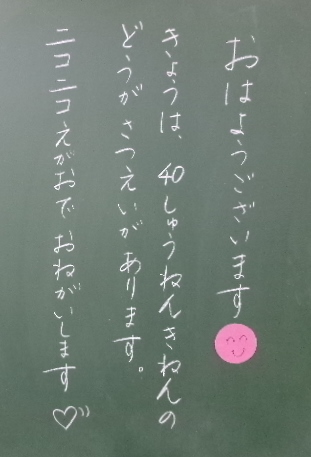 おはようございます
きょうは、40しゅうねんきねんの
どうがさつえいがあります。
ニコニコえがおで おねがいします♡